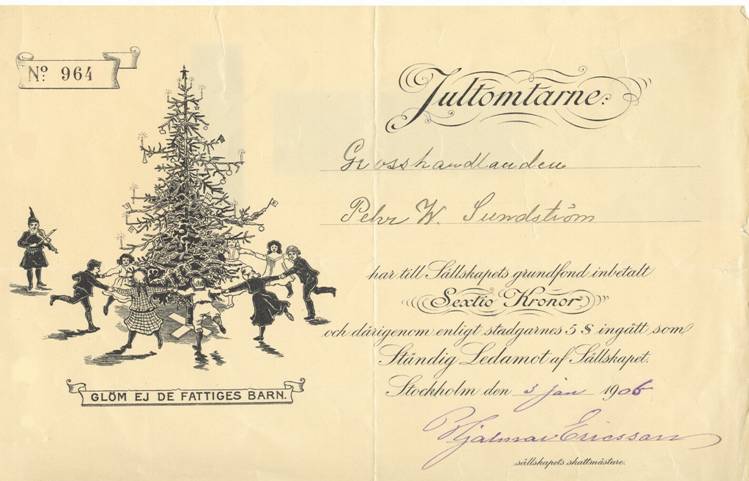 Nº 964
GLÖM EJ DE FATTIGES BARN.
Jultomtarne:
Grosshandlanden
Pehr W. Sundström
har till Sällskapets grundfond inbetalt
Sextio Kronor
och därigenom enligt stadgarnes 5 § ingått som
Ständig Ledamot af Sällskapet.
Stockholm den 3 jan 1906
Hjalmar Ericsson
sällskapets skattmästare.